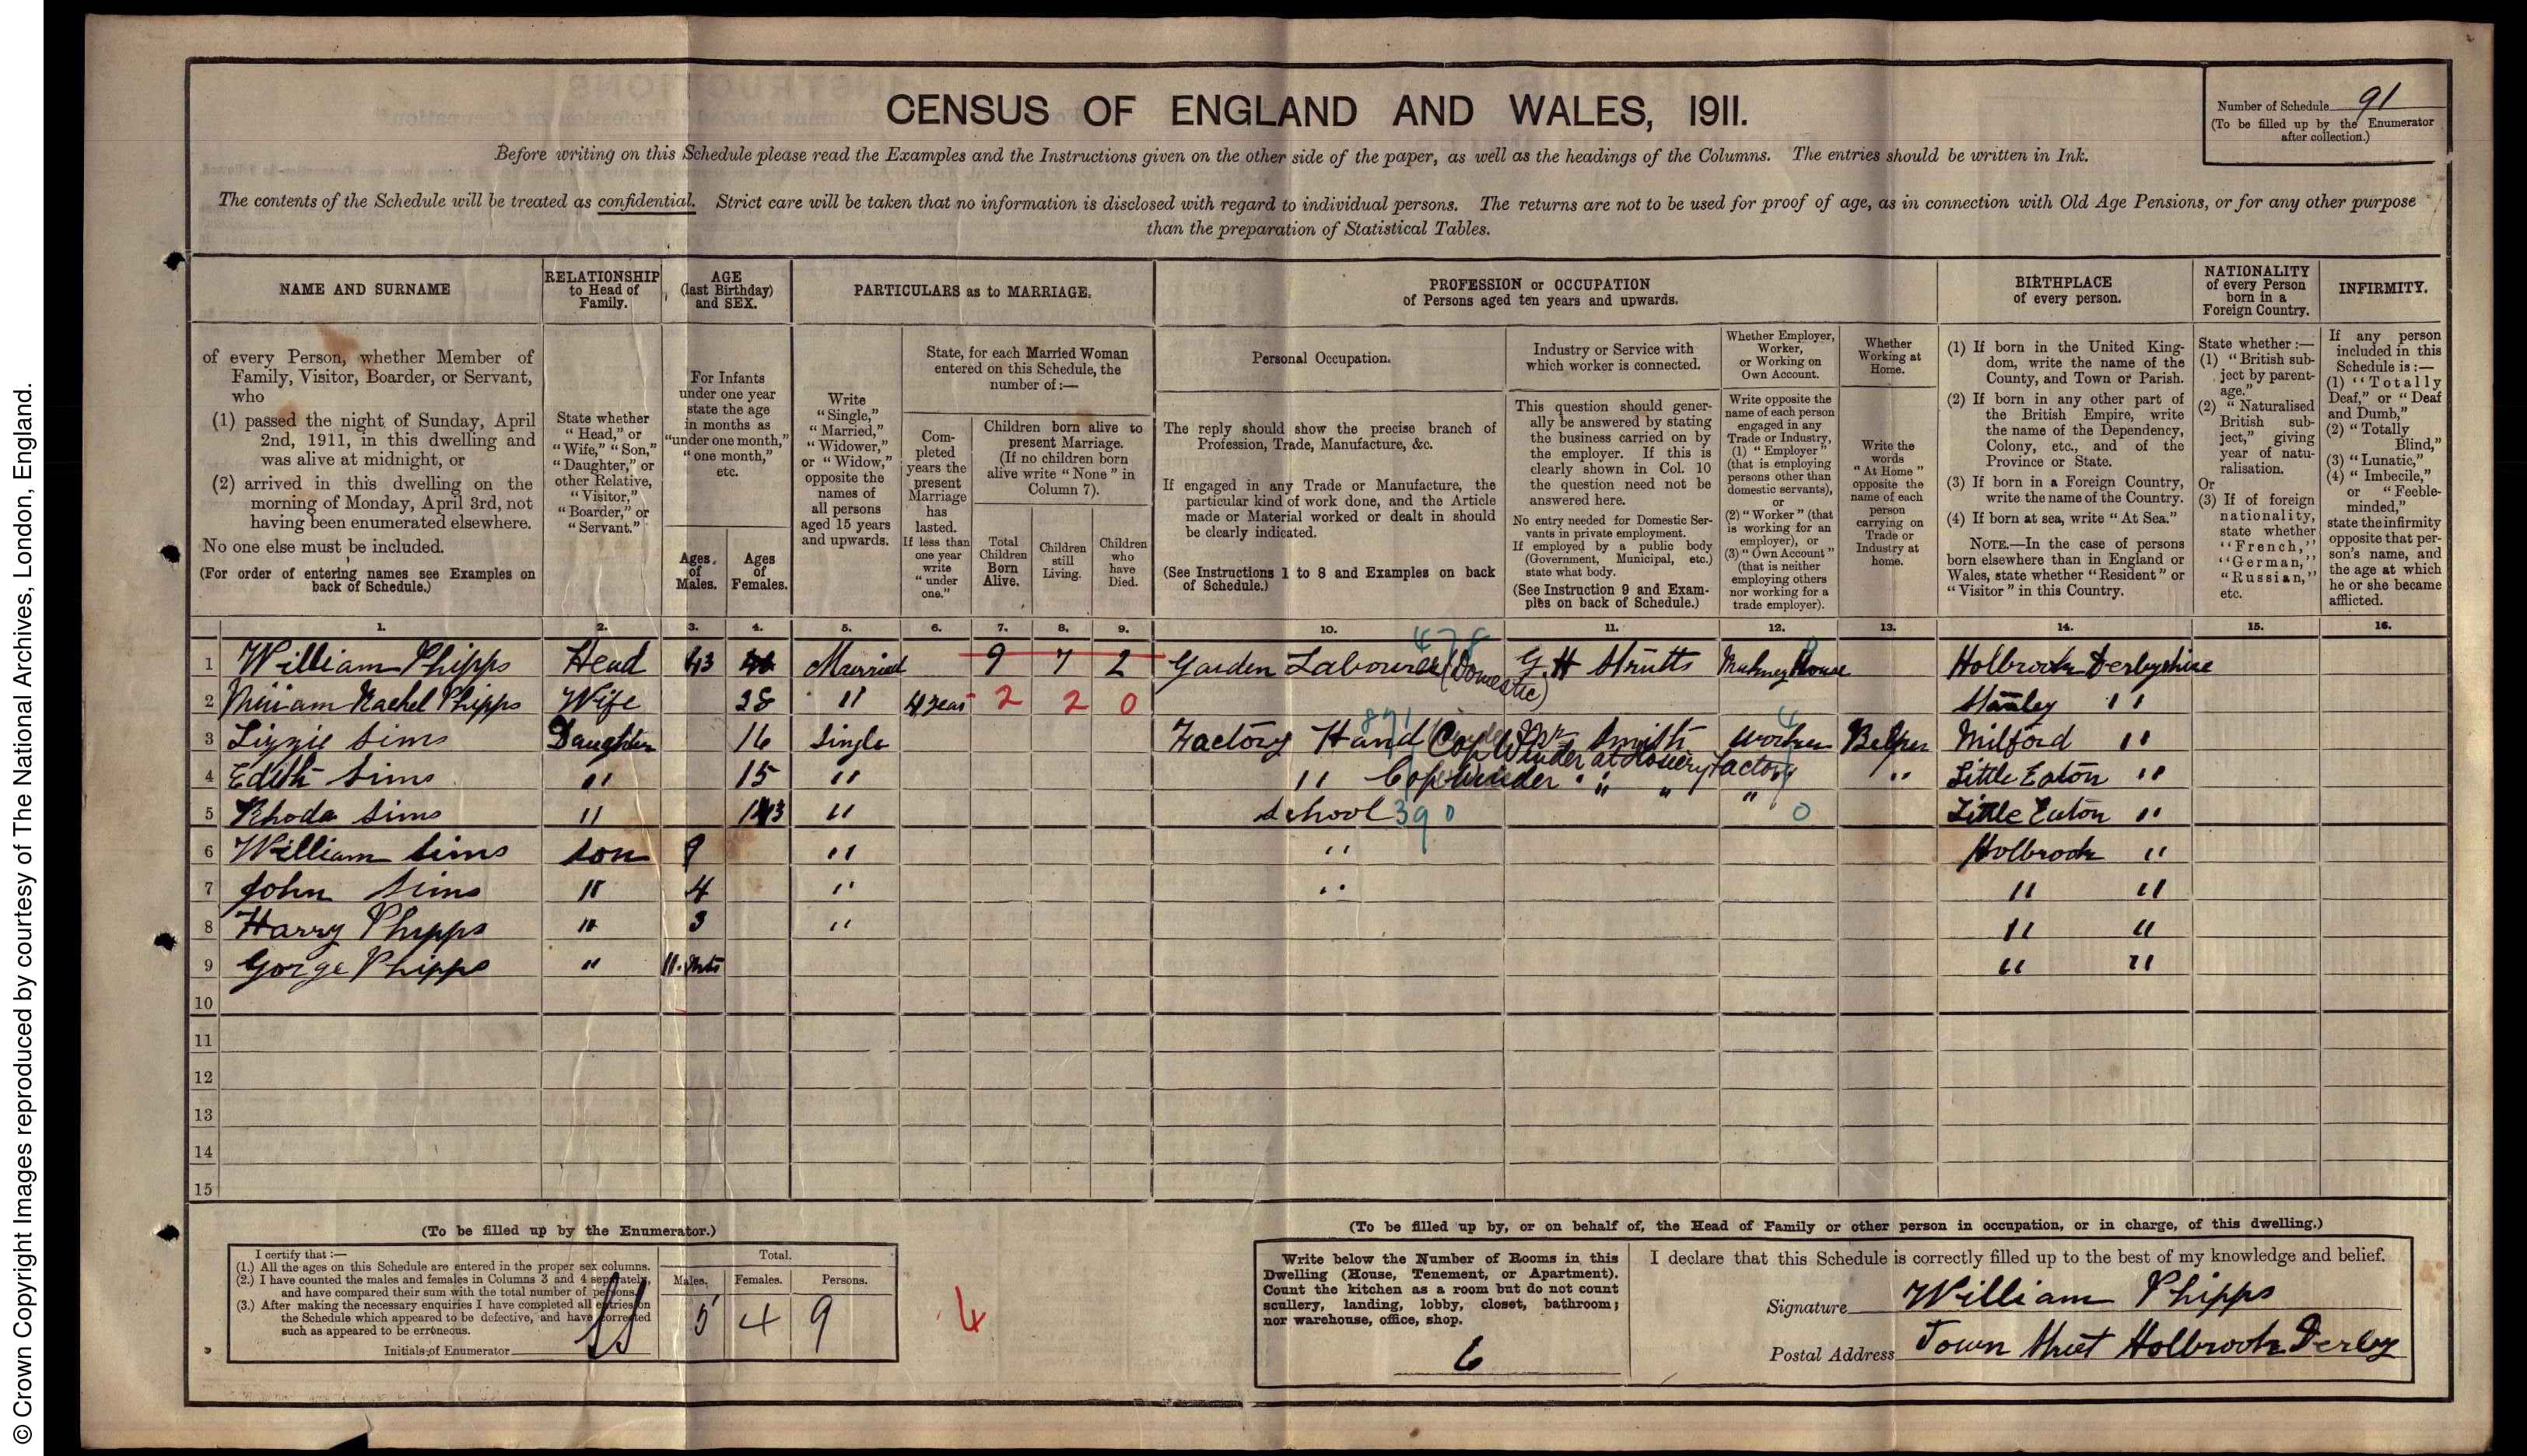 © Crown Copyright Images reproduced by courtesy of The National Archives, London, England.
CENSUS OF ENGLAND AND WALES, 1911.
Number of Schedule 91
(To be filled up by the Enumerator
after collection.)
Before writing on this Schedule please read the Examples and the Instructions given on the other side of the paper, as well as the headings of the Columns. The entries should be written in Ink.
The contents of the Schedule will be treated as confidential. Strict care will be taken that no information is disclosed with regard to individual persons. The returns are not to be used for proof of age, as in connection with Old Age Pensions, or for any other purpose
than the preparation of Statistical Tables.
NAME AND SURNAME
of every Person, whether Member of
Family, Visitor, Boarder, or Servant,
who
(1) passed the night of Sunday, April
2nd, 1911, in this dwelling and
was alive at midnight, or
(2) arrived in this dwelling on the
morning of Monday, April 3rd, not
having been enumerated elsewhere.
No one else must be included.
(For order of entering names see Examples on
back of Schedule.)
RELATIONSHIP
to Head of
Family.
State whether
"Head," or
"Wife," "Son,"
"Daughter," or
other Relative,
"Visitor,"
"Boarder," or
"Servant."
AGE
(last Birthday)
and SEX.
For Infants
under one year
state the age
in months as
"under one month,"
"one month,"
etc.
Ages
of
Males.
Ages
of
Females.
PARTICULARS as to MARRIAGE.
Write
"Single,"
"Married,"
"Widower,"
or "Widow,"
opposite the
names of
all persons
aged 15 years
and upwards.
State, for each Married Woman
entered on this Schedule, the
number of:—
Com-
pleted
years the
present
Marriage
has
lasted.
If less than
one year
write
"under
one."
Children born alive to
present Marriage.
(If no children born
alive write "None" in
Column 7).
Total
Children
Born
Alive.
Children
still
Living.
Children
who
have
Died.
PROFESSION or OCCUPATION
of Persons aged ten years and upwards.
Personal Occupation.
The reply should show the precise branch of
Profession, Trade, Manufacture, &c.
If engaged in any Trade or Manufacture, the
particular kind of work done, and the Article
made or Material worked or dealt in should
be clearly indicated.
(See Instructions 1 to 8 and Examples on back
of Schedule.)
Industry or Service with
which worker is connected.
This question should gener-
ally be answered by stating
the business carried on by
the employer. If this is
clearly shown in Col. 10
the question need not be
answered here.
No entry needed for Domestic Ser-
vants in private employment.
If employed by a public body
(Government, Municipal, etc.)
state what body.
(See Instruction 9 and Exam-
ples on back of Schedule.)
Whether Employer,
Worker,
or Working on
Own Account.
Write opposite the
name of each person
engaged in any
Trade or Industry,
(1) "Employer"
(that is employing
persons other than
domestic servants),
or
(2) "Worker" (that
is working for an
employer), or
(3) "Own Account"
(that is neither
employing others
nor working for a
trade employer).
Whether
Working at
Home.
Write the
words
"At Home"
opposite the
name of each
person
carrying on
Trade or
Industry at
home.
BIRTHPLACE
of every person.
(1) If born in the United King-
dom, write the name of the
County, and Town or Parish.
(2) If born in any other part of
the British Empire, write
the name of the Dependency,
Colony, etc., and of the
Province or State.
(3) If born in a Foreign Country,
write the name of the Country.
(4) If born at sea, write "At Sea."
NOTE.—In the case of persons
born elsewhere than in England or
Wales, state whether "Resident" or
"Visitor" in this Country.
NATIONALITY
of every Person
born in a
Foreign Country.
State whether:—
(1) "British sub-
ject by parent-
age."
(2) "Naturalised
British sub-
ject," giving
year of natu-
ralisation.
Or
(3) If of foreign
nationality,
state whether
"French,"
"German,"
"Russian,"
etc.
INFIRMITY.
If any person
included in this
Schedule is:—
(1) "Totally
Deaf," or "Deaf
and Dumb,"
(2) "Totally
Blind,"
(3) "Lunatic,"
(4) "Imbecile,"
or "Feeble-
minded,"
state the infirmity
opposite that per-
son's name, and
the age at which
he or she became
afflicted.
1. 2. 3. 4. 5. 6. 7. 8. 9. 10. 11. 12. 13. 14. 15. 16.
1 William Phipps Head 43 Married 9 7 2 Garden Labourer (Domestic) G. H Strutts Makney House Holbrook Derbyshire
2 Miriam Rachel Phipps Wife 38 " 4 years 2 2 0 Stanley "
3 Lizzie Sims Daughter 16 Single Factory Hand Cop Winder at Hosiery Factory Smith Worker Belper Milford "
4 Edith Sims " 15 " " Cop winder " " " " Little Eaton "
5 Rhoda Sims " 13 " School 390 0 Little Eaton "
6 William Sims Son 9 " " Holbrook "
7 John Sims " 4 " " " "
8 Harry Phipps " 3 " " "
9 Gorge Phipps " 11. Mts " "
10
11
12
13
14
15
(To be filled up by the Enumerator.)
I certify that:—
(1.) All the ages on this Schedule are entered in the proper sex columns.
(2.) I have counted the males and females in Columns 3 and 4 separately,
and have compared their sum with the total number of persons.
(3.) After making the necessary enquiries I have completed all entries on
the Schedule which appeared to be defective, and have corrected
such as appeared to be erroneous.
Initials of Enumerator
Total.
Males. Females. Persons.
5 4 9
4
(To be filled up by, or on behalf of, the Head of Family or other person in occupation, or in charge, of this dwelling.)
Write below the Number of Rooms in this
Dwelling (House, Tenement, or Apartment).
Count the kitchen as a room but do not count
scullery, landing, lobby, closet, bathroom;
nor warehouse, office, shop.
6
I declare that this Schedule is correctly filled up to the best of my knowledge and belief.
Signature William Phipps
Postal Address Town Street Holbrook Derby